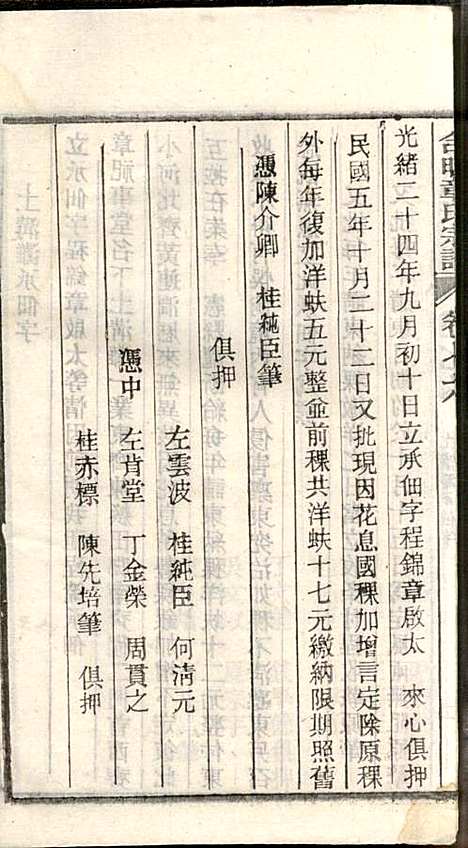 合明章氏宗譜
光緒二十四年九月初十日立承佃字程錦章啟太 來心俱押
民國五年十月二十二日又批現因花息國稞加增言定除原稞
外每年復加洋蚨五元整並前稞共洋蚨十七元繳納限期照舊
憑陳介卿 桂純臣筆
俱押
左雲波 桂純臣 何清元
憑中 左肯堂 丁金榮 周貫之
桂赤標 陳先培筆 俱押